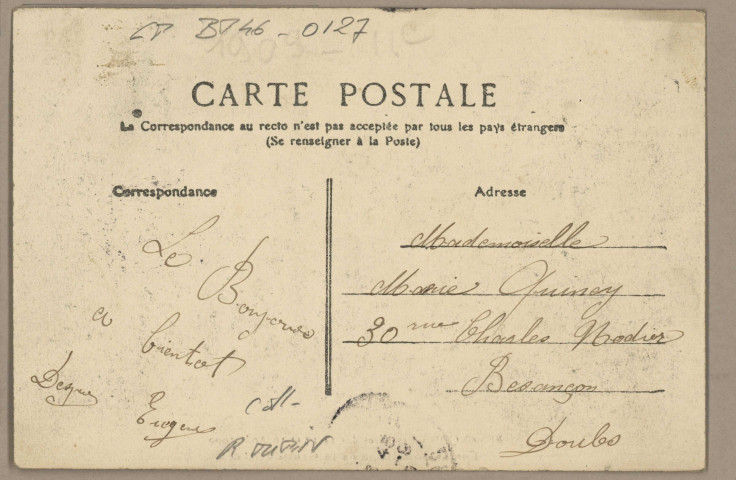 CP B746 - 0127
CARTE POSTALE
La Correspondance au recto n'est pas acceptée par tous les pays étrangers
(Se renseigner à la Poste)
Correspondance
Le Bonjour
a bientot
Eugene
coll.
Adresse
Mademoiselle
Marie Quiney
30 rue Charles Nodier
Besançon
Doubs